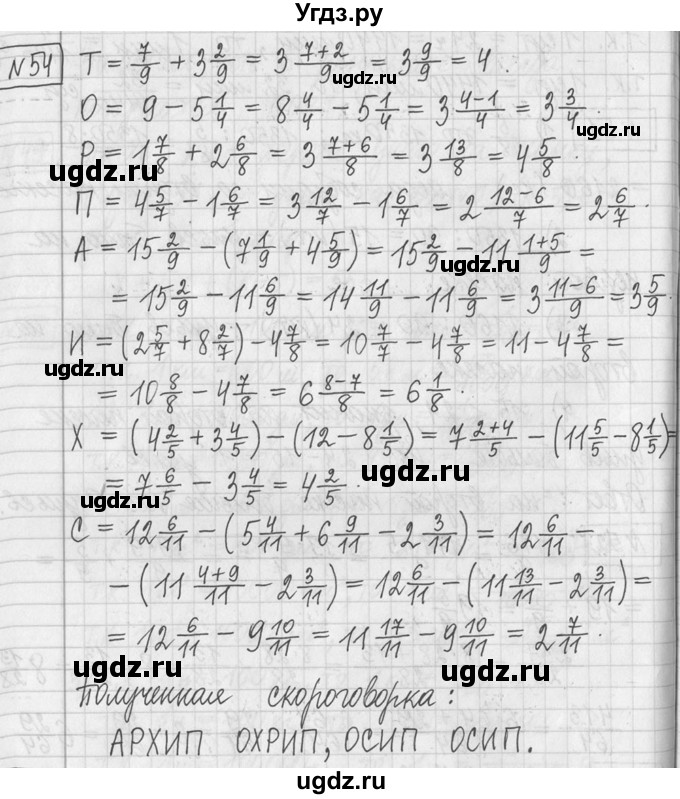 Угдз.ру
№54 Т = 7/9 + 3 2/9 = 3 (7+2)/9 = 3 9/9 = 4.
ugdz.ru
О = 9 − 5 1/4 = 8 4/4 − 5 1/4 = 3 (4−1)/4 = 3 3/4.
ugdz.ru
Р = 1 7/8 + 2 6/8 = 3 (7+6)/8 = 3 13/8 = 4 5/8.
ugdz.ru
П = 4 5/7 − 1 6/7 = 3 12/7 − 1 6/7 = 2 (12−6)/7 = 2 6/7.
А = 15 2/9 − (7 1/9 + 4 5/9) = 15 2/9 − 11 (1+5)/9 =
ugdz.ru
= 15 2/9 − 11 6/9 = 14 11/9 − 11 6/9 = 3 (11−6)/9 = 3 5/9.
И = (2 5/7 + 8 2/7) − 4 7/8 = 10 7/7 − 4 7/8 = 11 − 4 7/8 =
ugdz.ru
= 10 8/8 − 4 7/8 = 6 (8−7)/8 = 6 1/8.
Х = (4 2/5 + 3 4/5) − (12 − 8 1/5) = 7 (2+4)/5 − (11 5/5 − 8 1/5) =
ugdz.ru
= 7 6/5 − 3 4/5 = 4 2/5.
ugdz.ru
С = 12 6/11 − (5 4/11 + 6 9/11 − 2 3/11) = 12 6/11 −
ugdz.ru
− (11 (4+9)/11 − 2 3/11) = 12 6/11 − (11 13/11 − 2 3/11) =
= 12 6/11 − 9 10/11 = 11 17/11 − 9 10/11 = 2 7/11.
ugdz.ru
ugdz.ru
Полученная скороговорка:
АРХИП ОХРИП, ОСИП ОСИП.
ugdz.ru
ugdz.ru